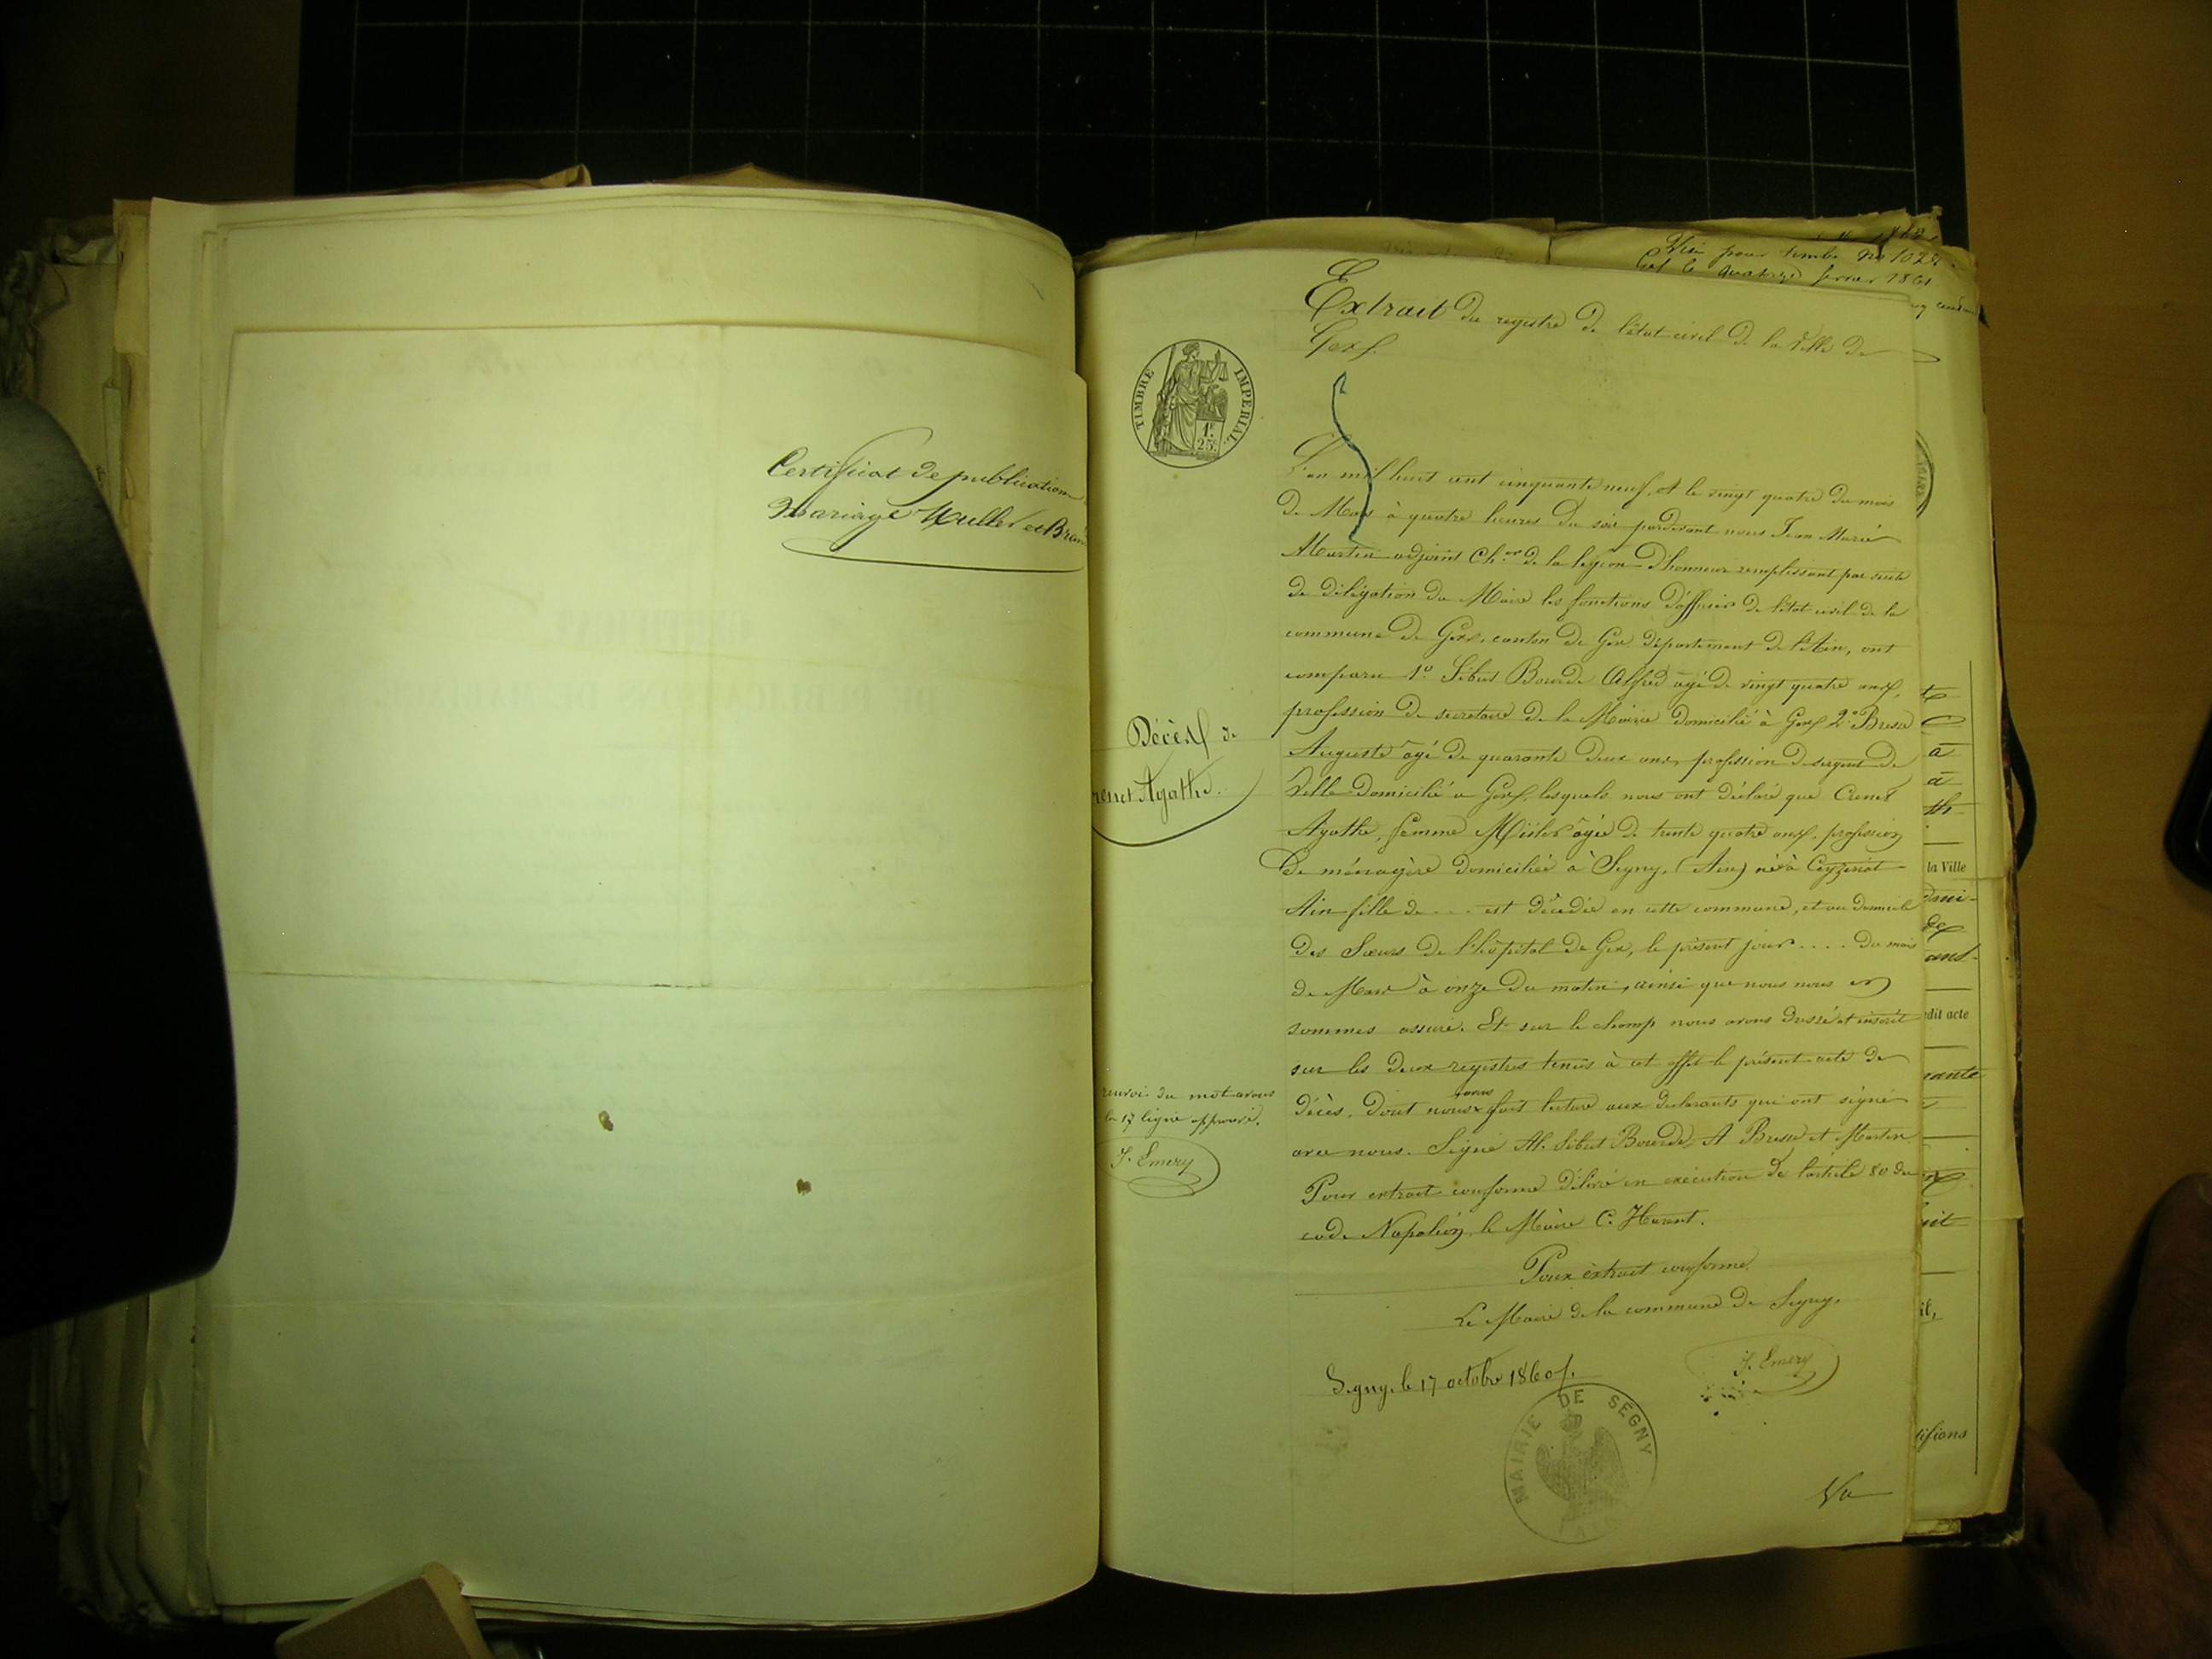 Certificat de publication
Mariage Muller et
Visé pour timbre no 102
le quatorze février 1861
Extrait du registre de l'état civil de la Ville de
Gex.
TIMBRE IMPERIAL
1f.
25c.
L'an mil huit cent cinquante neuf, et le vingt quatre du mois
de Mars à quatre heures du soir pardevant nous Jean Marie
Martin adjoint Ch.er de la légion d'honneur remplissant par suite
de délégation du Maire les fonctions d'officier de l'état civil de la
commune de Gex, canton de Gex département de l'Ain, ont
comparu 1º Sibut Bourde Alfred agé de vingt quatre ans,
profession de secretaire de la Mairie domicilié à Gex 2º Bresse
Auguste âgé de quarante deux ans, profession de sergent de
Ville domicilié a Gex, lesquels nous ont déclaré que Crenet
Agathe, femme âgée de trente quatre ans, profession
de ménagère domiciliée à Segny, (Ain) née à Ceyzeriat
Ain fille de ... est décédée en cette commune, et au domicile
des Sœurs de l'hôpital de Gex, le présent jour .... du mois
de Mars à onze du matin, ainsi que nous nous en
sommes assuré. Et sur le champ nous avons dressé et inscrit
sur les deux registres tenus à cet effet le présent acte de
avons
décès, dont nous x fait lecture aux declarants qui ont signé
avec nous. Signé Al. Sibut Bourde, A Bresse et Martin
Pour extrait conforme délivré en exécution de l'article 80 du
code Napoléon, le Maire C.
Pour extrait conforme
Le Maire de la commune de Segny,
Segny, le 17 octobre 1860
J. Emery
MAIRIE DE SÉGNY
Décès de
renet Agathe.
renvoi du mot avons
la 17 ligne approuvé.
J. Emery
la Ville
dit acte
tifions